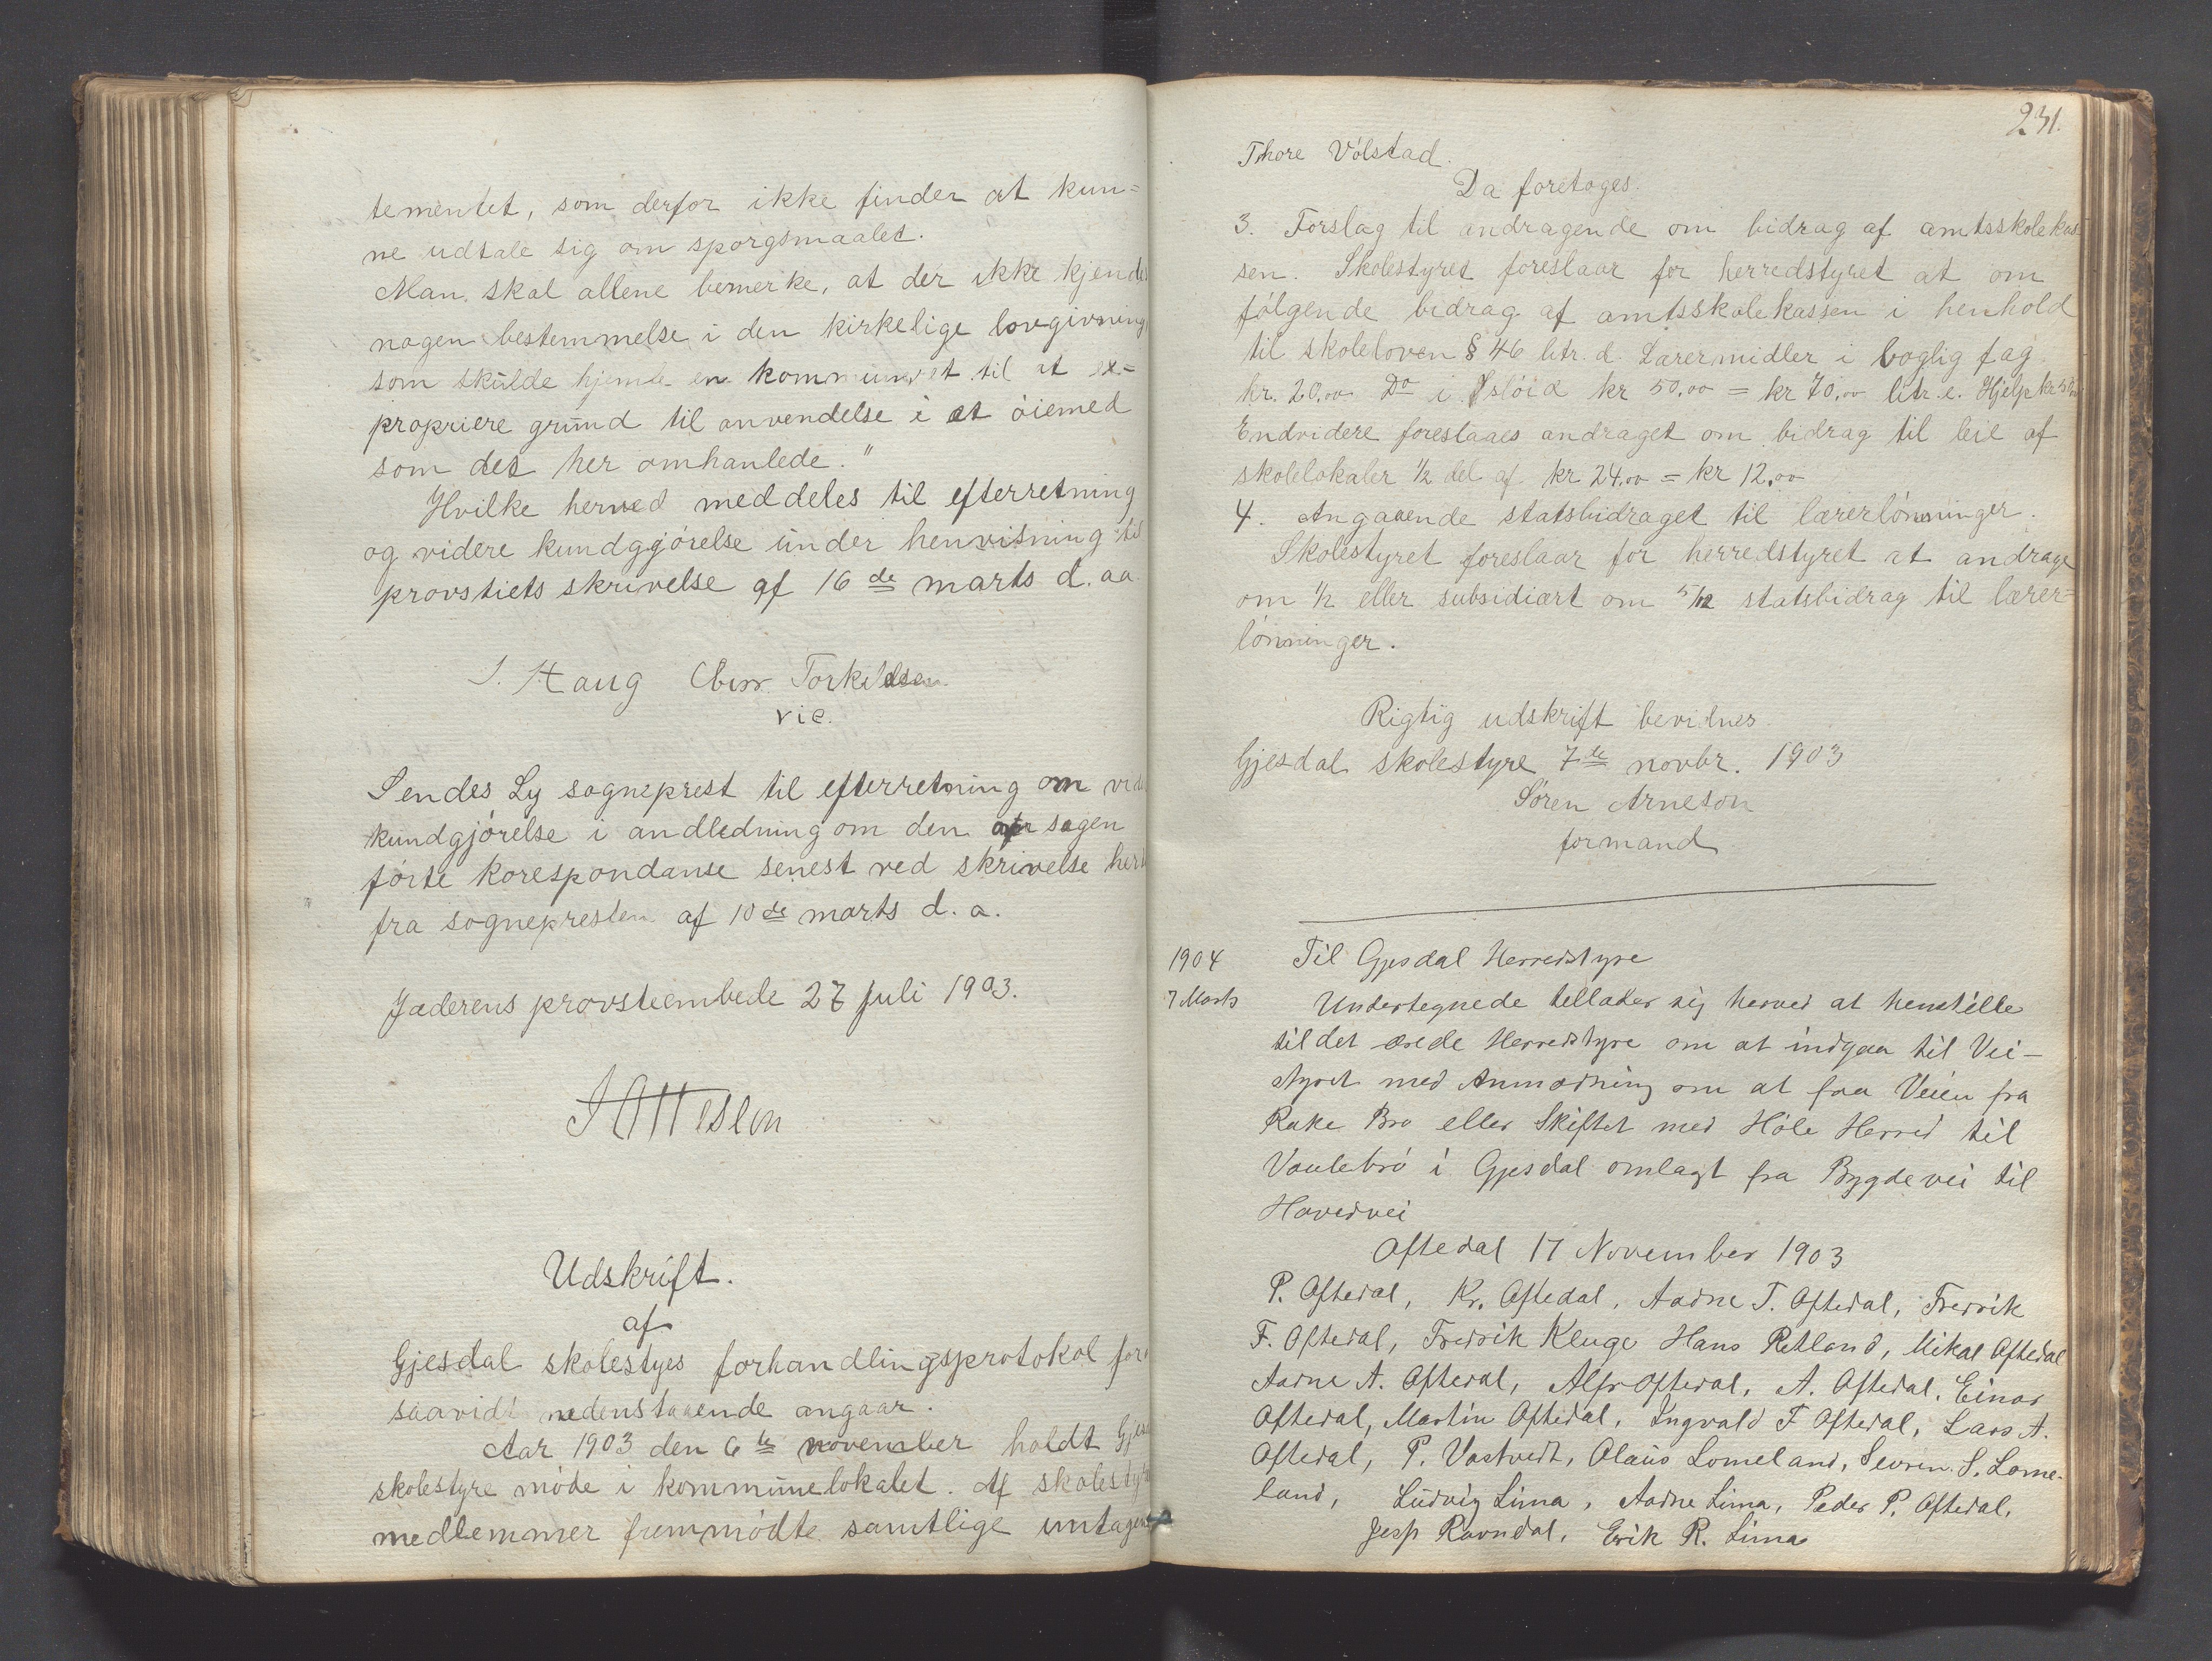 tementet, som derfor ikke finder at kun=
ne udtale sig om sporgsmaalet.
Man skal allene bemerke, at der ikke kjendes
nogen bestemmelse i den kirkelige lovgivning
som skulde hjemle en kommune ret til at ex=
propriere grund til anvendelse i et öiemed
som det her omhanlede."
Hvilke herved meddeles til efterretning
og videre kundggjörelse under henvisning til
provstiets skrivelse af 16de marts d. aa.
Haug Torkildsen
vic.
Sendes Ly sogneprest til efterretning om
kundgjörelse i andledning om den sagen
förte korespondanse senest ved skrivelse
fra sognepresten af 10de marts d. a.
Jæderens provsteembede 27 juli 1903.
Udskrift.
af
Gjesdal skolestyes forhandlingsprotokol
saavidt nedenstaaende angaar.
Aar 1903 den 6te november holdt
skolestyre möde i kommunelokalet. Af
medlemmer fremmödte samtlige
231.
Thore Völstad.
Da foretoges.
3. Forslag til andragende om bidrag af amtsskolekas
sen. Skolestyret foreslaar for herredstyret at om
fölgende bidrag af amtsskolekassen i henhold
til skoleloven § 46 litr. d. Lærermidler i boglig fag
kr. 20,00 Do i slöid kr 50,00 = kr 70,00 litr. e. Hjelp kr
Endvidere foreslaaes andraget om bidrag til leie af
skolelokaler 1/2 del af kr 24,00 = kr 12,00
4. Angaaende statsbidraget til lærerlönninger.
Skolestyret foreslaar for herredstyret at andrage
om 1/2 eller subsidiært om 5/12 statsbidrag til lærer=
lönninger.
Rigtig udskrift bevidnes
Gjesdal skolestyre 7de novbr. 1903
Sören Arneson
formand
1904 Til Gjesdal Herredstyre
7 Marts Undertegnede tellader sig herved at henstille
til det ærede Herredstyre om at indgaa til Vei-
styret med Anmodning om at faa Veien fra
Rake Bro eller Skiftet med Höle Herred til
Vaulebró i Gjesdal omlagt fra Bygdevei til
Hovedvei
Oftedal 17 November 1903
P. Oftedal, Kr. Oftedal, Aadne T. Oftedal, Fredrik
F. Oftedal, Fredrik Kluge Hans Retland, Mikal Oftedal
Aadne A. Oftedal, Alfr Oftedal, A. Oftedal. Einar
Oftedal, Martin Oftedal, Ingvald F Oftedal, Lars A.
Oftedal, P. Vastvedt, Olaus Lomeland, Sevrin. S. Lome-
land, Ludvig Lima, Aadne Lima, Peder P. Oftedal,
Jesp Ravndal, Erik R. Lima